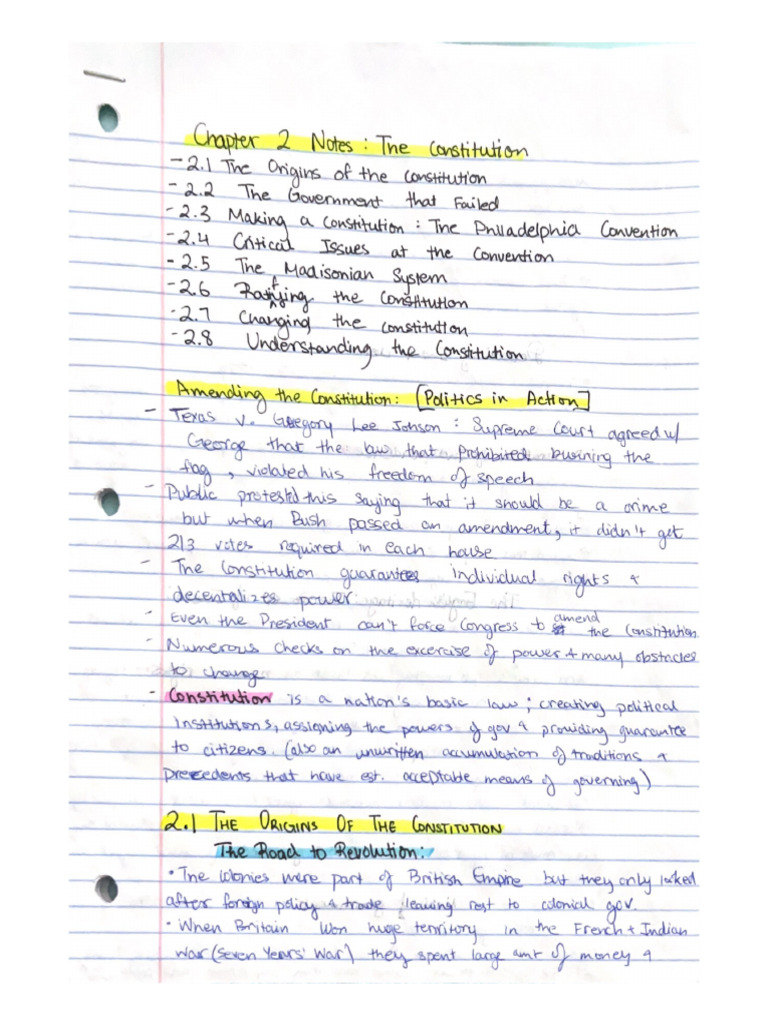 Chapter 2 Notes : The Constitution
- 2.1 The Origins of the Constitution
- 2.2 The Government that Failed
- 2.3 Making a Constitution : The Philadelphia Convention
- 2.4 Critical Issues at the Convention
- 2.5 The Madisonian System
- 2.6 Ratifying the Constitution
- 2.7 Changing the Constitution
- 2.8 Understanding the Constitution
Amending the Constitution: [Politics in Action]
- Texas v. Gregory Lee Jonson : Supreme Court agreed w/
George that the law that prohibited burning the
flag , violated his freedom of speech
- Public protested this saying that it should be a crime
but when Bush passed an amendment, it didn't get
2/3 votes required in each house
- The Constitution guarantees individual rights &
decentralizes power.
- Even the President can't force Congress to amend the Constitution
- Numerous checks on the excercise of power + many obstacles
to change
- Constitution is a nation's basic law ; creating political
institutions, assigning the powers of gov & providing guarantee
to citizens. (also an unwritten accumulation of traditions &
precedents that have est. acceptable means of governing)
2.1 THE ORIGINS OF THE CONSTITUTION
The Road to Revolution:
• The colonies were part of British Empire but they only looked
after foreign policy & trade leaving rest to colonial gov.
• When Britain won huge territory in the French + Indian
War (Seven Years' War) they spent large amt of money &